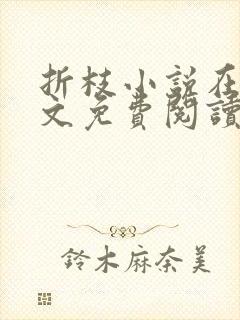 折枝小说在
文免費閱讀
鈴木麻奈美